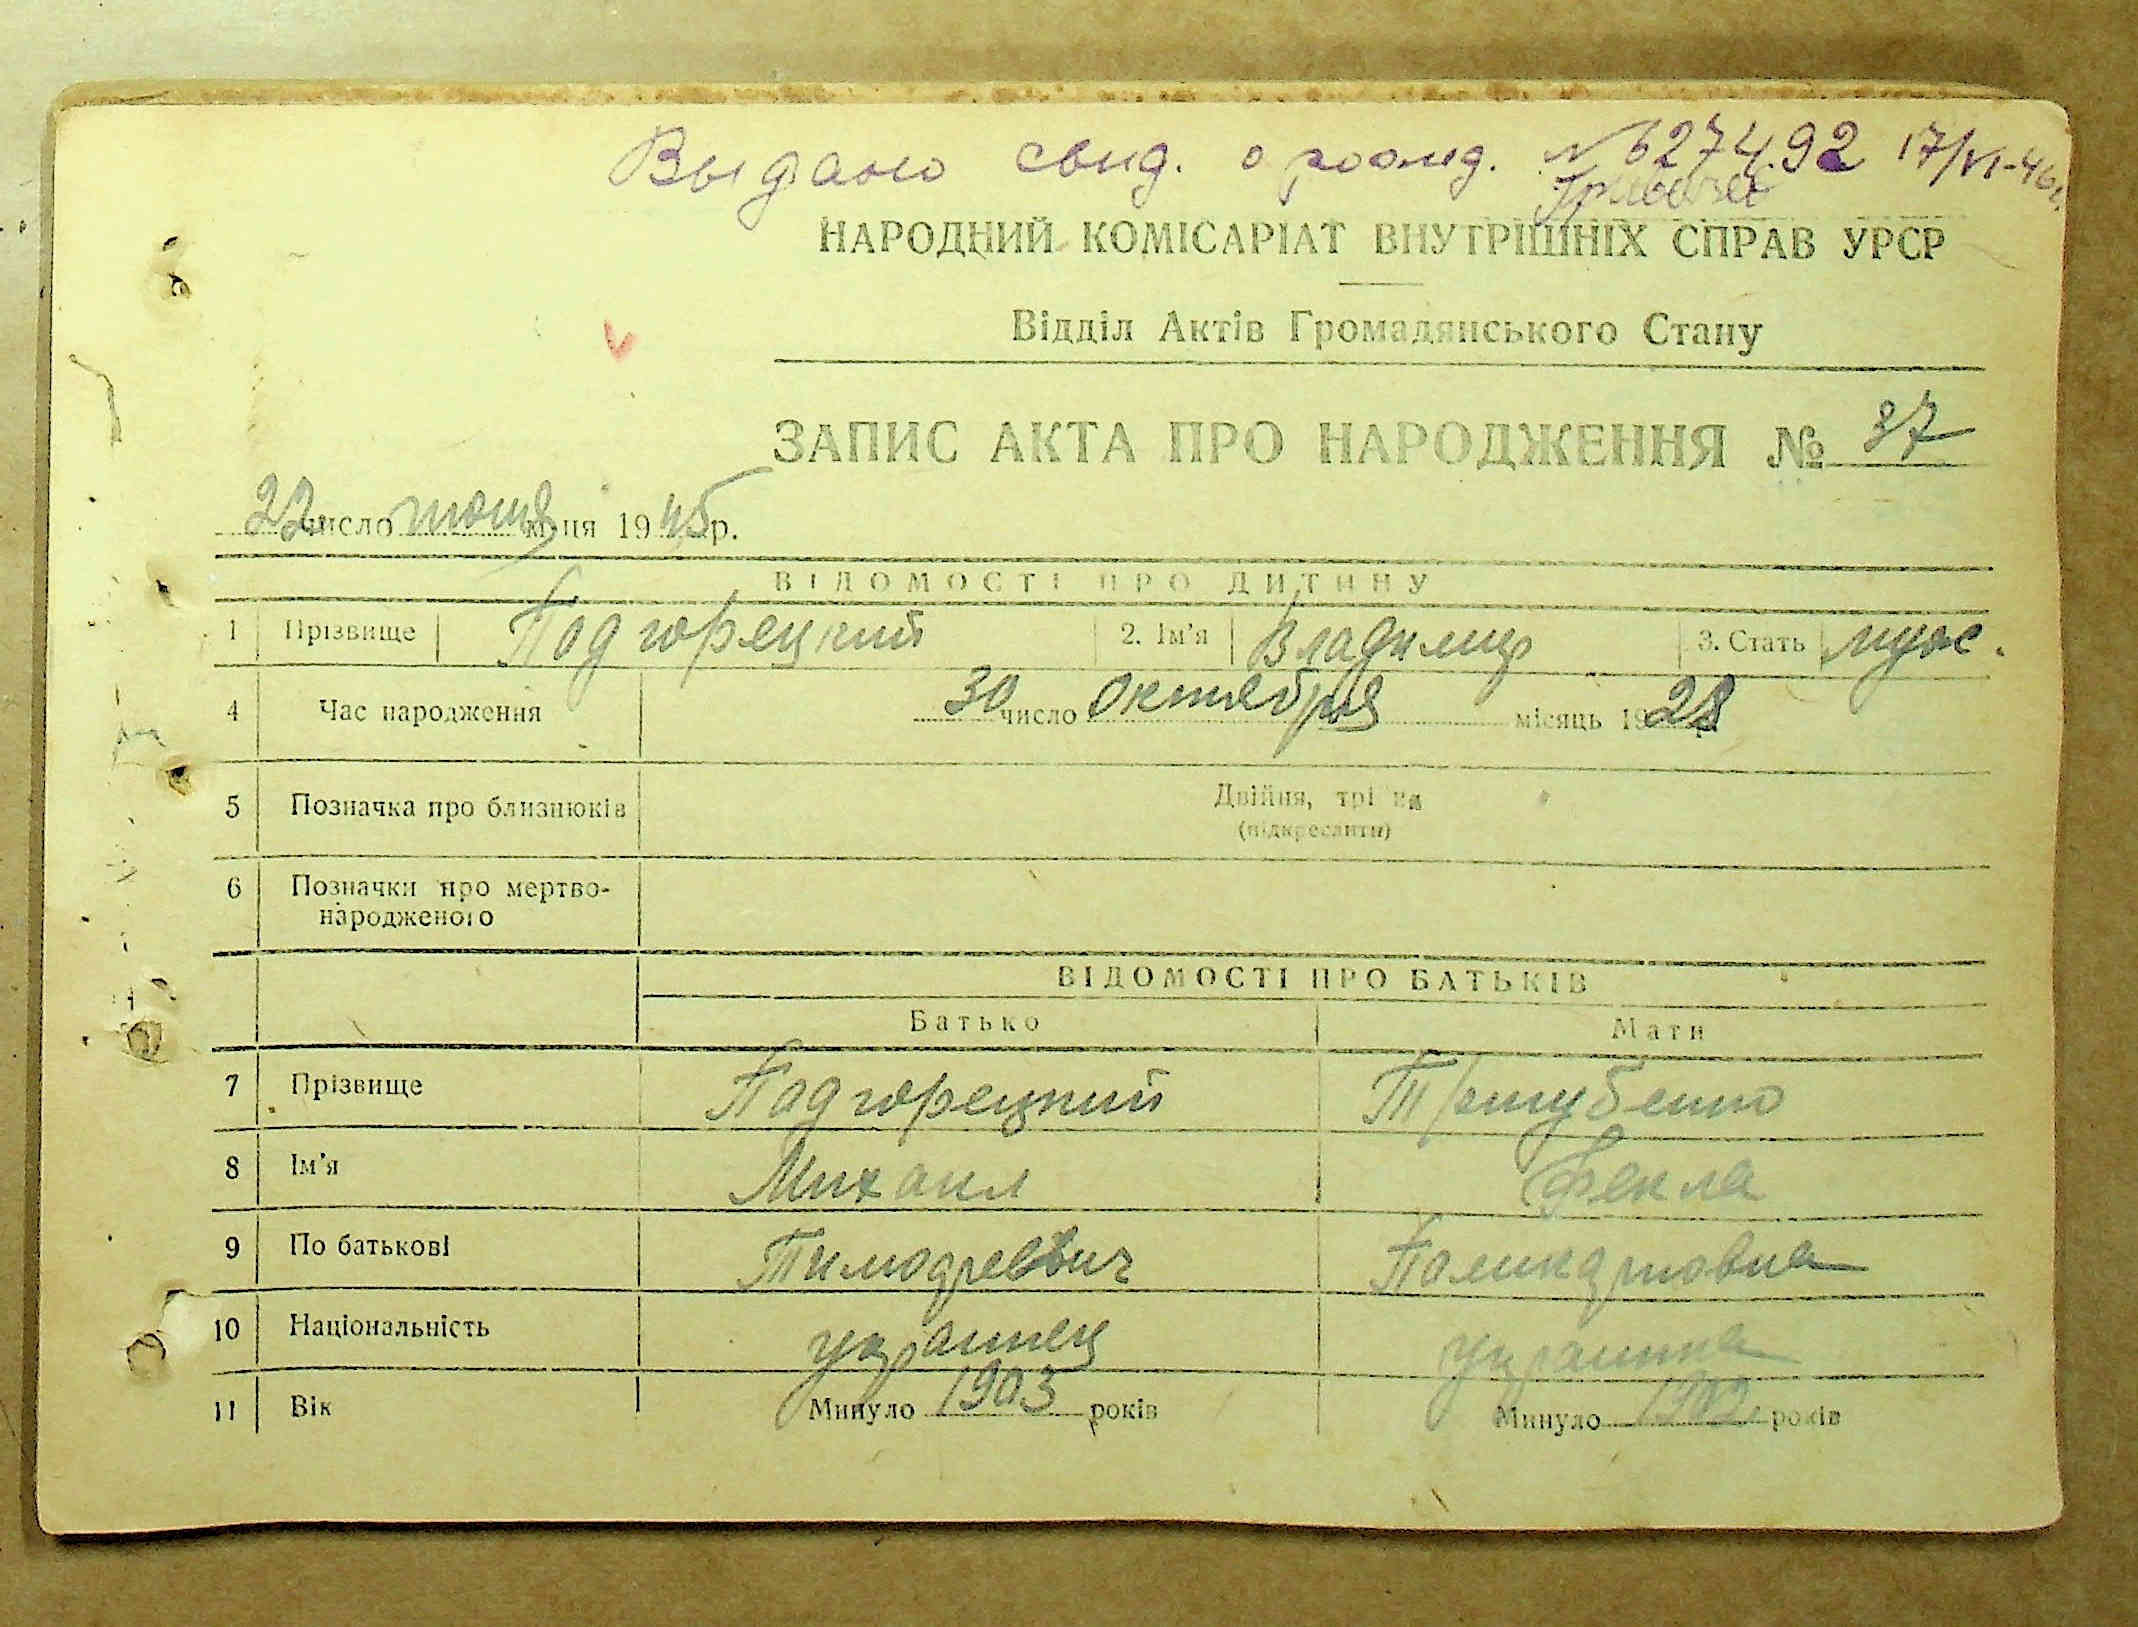 Выдано свид. о рожд. № 627492 17/VI-46г.
НАРОДНИЙ КОМІСАРІАТ ВНУТРІШНІХ СПРАВ УРСР
Відділ Актів Громадянського Стану
ЗАПИС АКТА ПРО НАРОДЖЕННЯ № 37
22 число июня м-ця 1945 р.
ВІДОМОСТІ ПРО ДИТИНУ
1 Прізвище Подгорецкий 2. Ім'я Владимир 3. Стать муж.
4 Час народження 30 число Октября місяць 1928 р.
5 Позначка про близнюків Двійня, трійня
(підкреслити)
6 Позначки про мертво-
народженого
ВІДОМОСТІ ПРО БАТЬКІВ
Батько Мати
7 Прізвище Подгорецкий
8 Ім'я Михаил Фекла
9 По батькові Тимофеевич Поликарповна
10 Національність украинец украинка
11 Вік Минуло 1903 років Минуло років